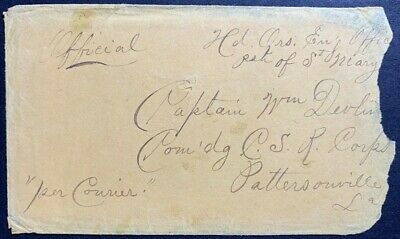 Official
Hd. Qrs. Eng. Offic
psh of St Mary
Captain Wm Devlin
Com'dg C. S. R. Corps
Pattersonville
La
"per Courier."